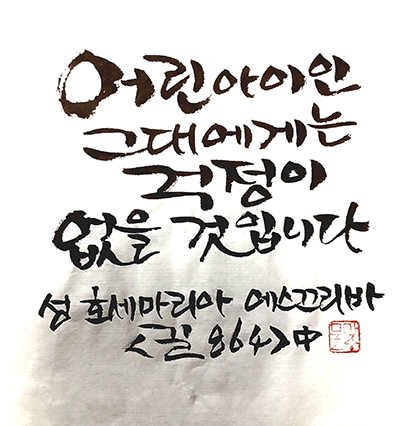 어린아이인
그대에게는
걱정이
없을 것입니다
성 호세마리아 에스끄리바
<길 864>中